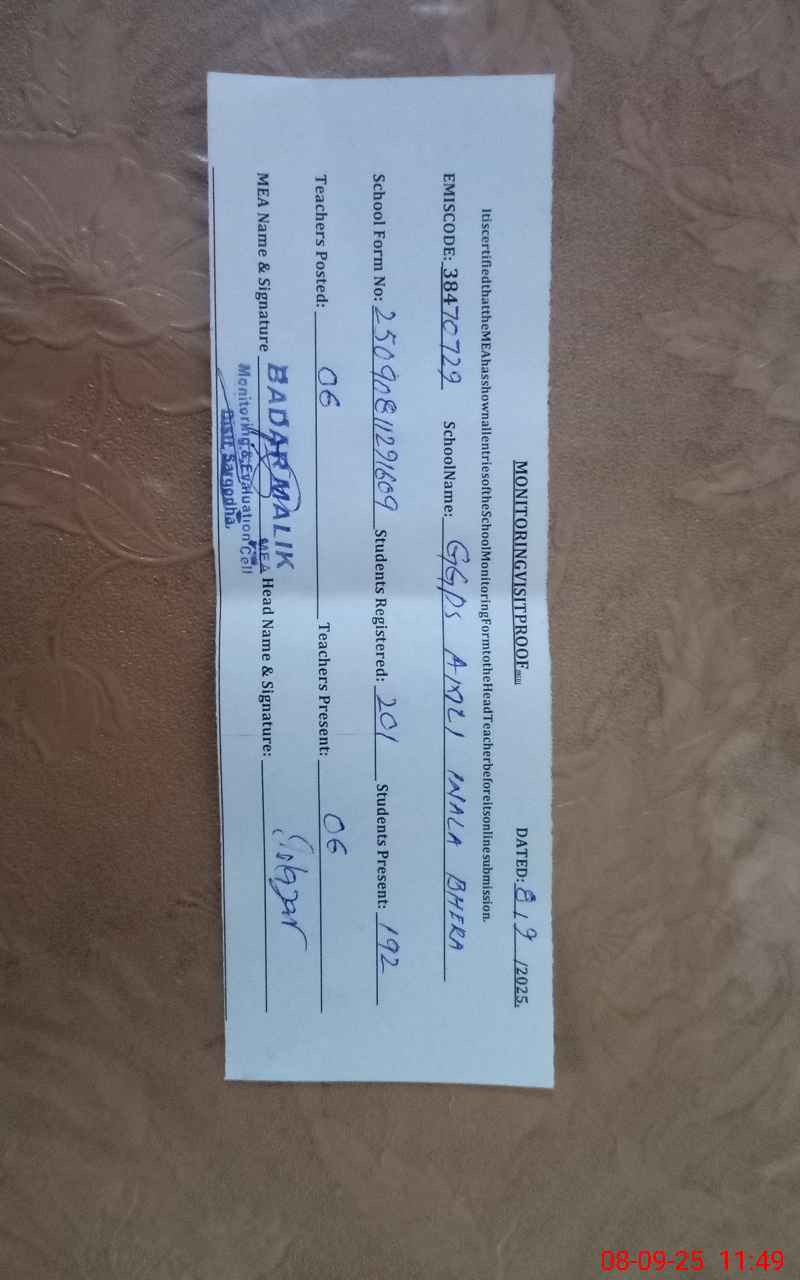 MONITORINGVISITPROOF DATED: 8/9/2025.
ItiscertifiedthattheMEAhasshownallentriesoftheSchoolMonitoringFormtotheHeadTeacherbeforeitsonlinesubmission.
EMISCODE: 38470729 SchoolName: GGPS AMLI WALA BHERA
School Form No: Students Registered: 201 Students Present: 192
Teachers Posted: 06 Teachers Present: 06
MEA Name & Signature BADAR MALIK Head Name & Signature:
MEA
Monitoring & Evaluation Cell
Distt. Sargodha.
08-09-25 11:49